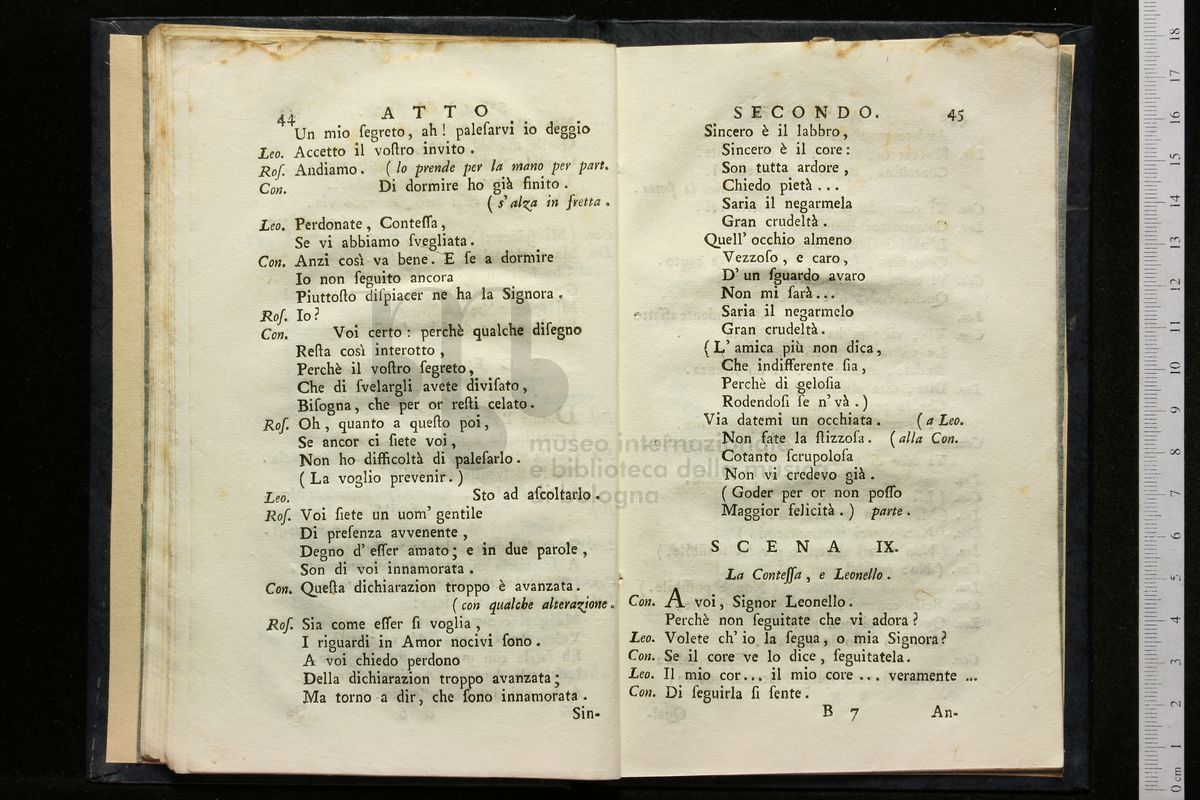 44
ATTO
Un mio ſegreto, ah! paleſarvi io deggio
Leo. Accetto il voſtro invito.
Roſ. Andiamo. (lo prende per la mano per part.
Con. Di dormire ho già finito.
(s'alza in fretta.
Leo. Perdonate, Conteſſa,
Se vi abbiamo ſvegliata.
Con. Anzi così va bene. E ſe a dormire
Io non ſeguito ancora
Piuttoſto diſpiacer ne ha la Signora.
Roſ. Io?
Con. Voi certo: perchè qualche diſegno
Reſta così interotto,
Perchè il voſtro ſegreto,
Che di ſvelargli avete diviſato,
Biſogna, che per or reſti celato.
Roſ. Oh, quanto a queſto poi,
Se ancor ci ſiete voi,
Non ho difficoltà di paleſarlo.
(La voglio prevenir.)
Leo. Sto ad aſcoltarlo.
Roſ. Voi ſiete un uom' gentile
Di preſenza avvenente,
Degno d'eſſer amato; e in due parole,
Son di voi innamorata.
Con. Queſta dichiarazion troppo è avanzata.
(con qualche alterazione.
Roſ. Sia come eſſer ſi voglia,
I riguardi in Amor nocivi ſono.
A voi chiedo perdono
Della dichiarazion troppo avanzata;
Ma torno a dir, che ſono innamorata.
Sin-
SECONDO.
45
Sincero è il labbro,
Sincero è il core:
Son tutta ardore,
Chiedo pietà...
Saria il negarmela
Gran crudeltà.
Quell'occhio almeno
Vezzoſo, e caro,
D'un ſguardo avaro
Non mi ſarà...
Saria il negarmelo
Gran crudeltà.
(L'amica più non dica,
Che indifferente ſia,
Perchè di geloſia
Rodendoſi ſe n'và.)
Via datemi un occhiata. (a Leo.
Non fate la ſtizzoſa. (alla Con.
Cotanto ſcrupoloſa
Non vi credevo già.
(Goder per or non poſſo
Maggior felicità.) parte.
SCENA IX.
La Conteſſa, e Leonello.
Con. A voi, Signor Leonello.
Perchè non ſeguitate che vi adora?
Leo. Volete ch'io la ſegua, o mia Signora?
Con. Se il core ve lo dice, ſeguitatela.
Leo. Il mio cor... il mio core... veramente...
Con. Di ſeguirla ſi ſente.
B 7
An-
museo internazionale
e biblioteca della musica
bologna
0 cm 1 2 3 4 5 6 7 8 9 10 11 12 13 14 15 16 17 18